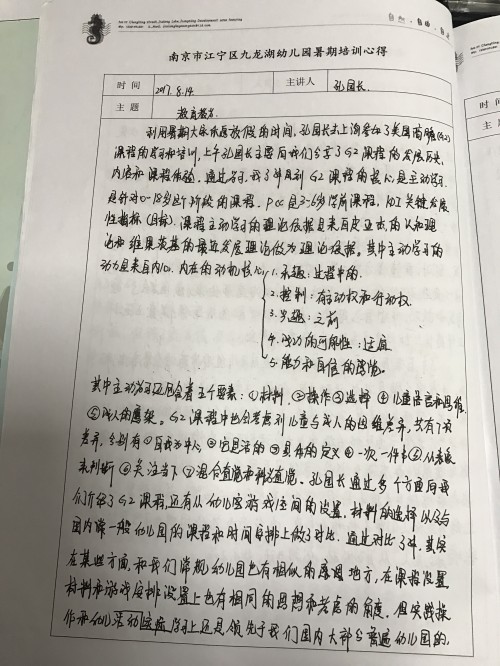 南京市江宁区九龙湖幼儿园暑期培训心得
时间 2017.8.14 主讲人 孔园长
主题 教育教学
利用暑期大家乐愿放假的时间,孔园长去上海参加了美国高瞻(G2)
课程的学习和培训,上午孔园长主要向我们分享了G2课程的发展历史,
内容和课程体验。通过学习,我了解到G2课程的核心是主动学习.
是针对0-18岁四阶段的课程。 是3-6岁学前课程, 关键发展
性指标(目标).课程主动学习的理论依据是来自皮亚杰的认知理
论和维果茨基的最近发展理论做为理论依据。其中主动学习的
动力是来自内心.内在的动机 1.乐趣:过程中的.
2.控制:有主动权和行动权.
3.兴趣:之前
4.成功的可能性:适度
5.能力和自信的感觉。
其中主动学习还包含着五个要素:①材料.②操作③选择④儿童语言和思维
⑤成人的鹰架。G2课程中也会考虑到儿童与成人的思维差异,共有7项
差异,分别有①自我为中心②灵活的③具体的定义④一次一件事⑤从表象
来判断⑥关注当下⑦混合直觉和科学直觉。孔园长通过多个方面向我
们介绍了G2课程,还有从幼儿园游戏区间的设置.材料的选择以及与
国内常一般幼儿园的课程和时间安排上做了对比.通过对比了解,其实
在某些方面和我们常规幼儿园也有相似的 地方,在课程设置
材料和游戏安排设置上也有相同的思想和考虑的角度.但实践操
作和幼儿活动 学习上还是领先于我们国内大部分普通幼儿园的,